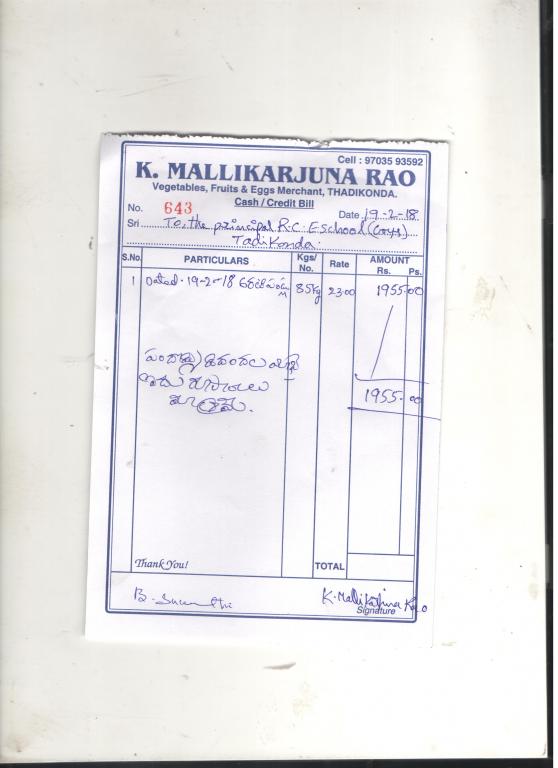 Cell : 97035 93592
K. MALLIKARJUNA RAO
Vegetables, Fruits & Eggs Merchant, THADIKONDA.
Cash / Credit Bill
No. 643 Date 19-2-18
Sri To, the principal R.C. E School (Boys)
Tadikonda.
S.No. PARTICULARS Kgs/ No. Rate AMOUNT Rs. Ps.
1 Dated. 19-2-18 85kg 23.00 1955-00
రూపాయలు
1955-00
Thank You! TOTAL
B. K. Mallikarjuna Rao
Signature